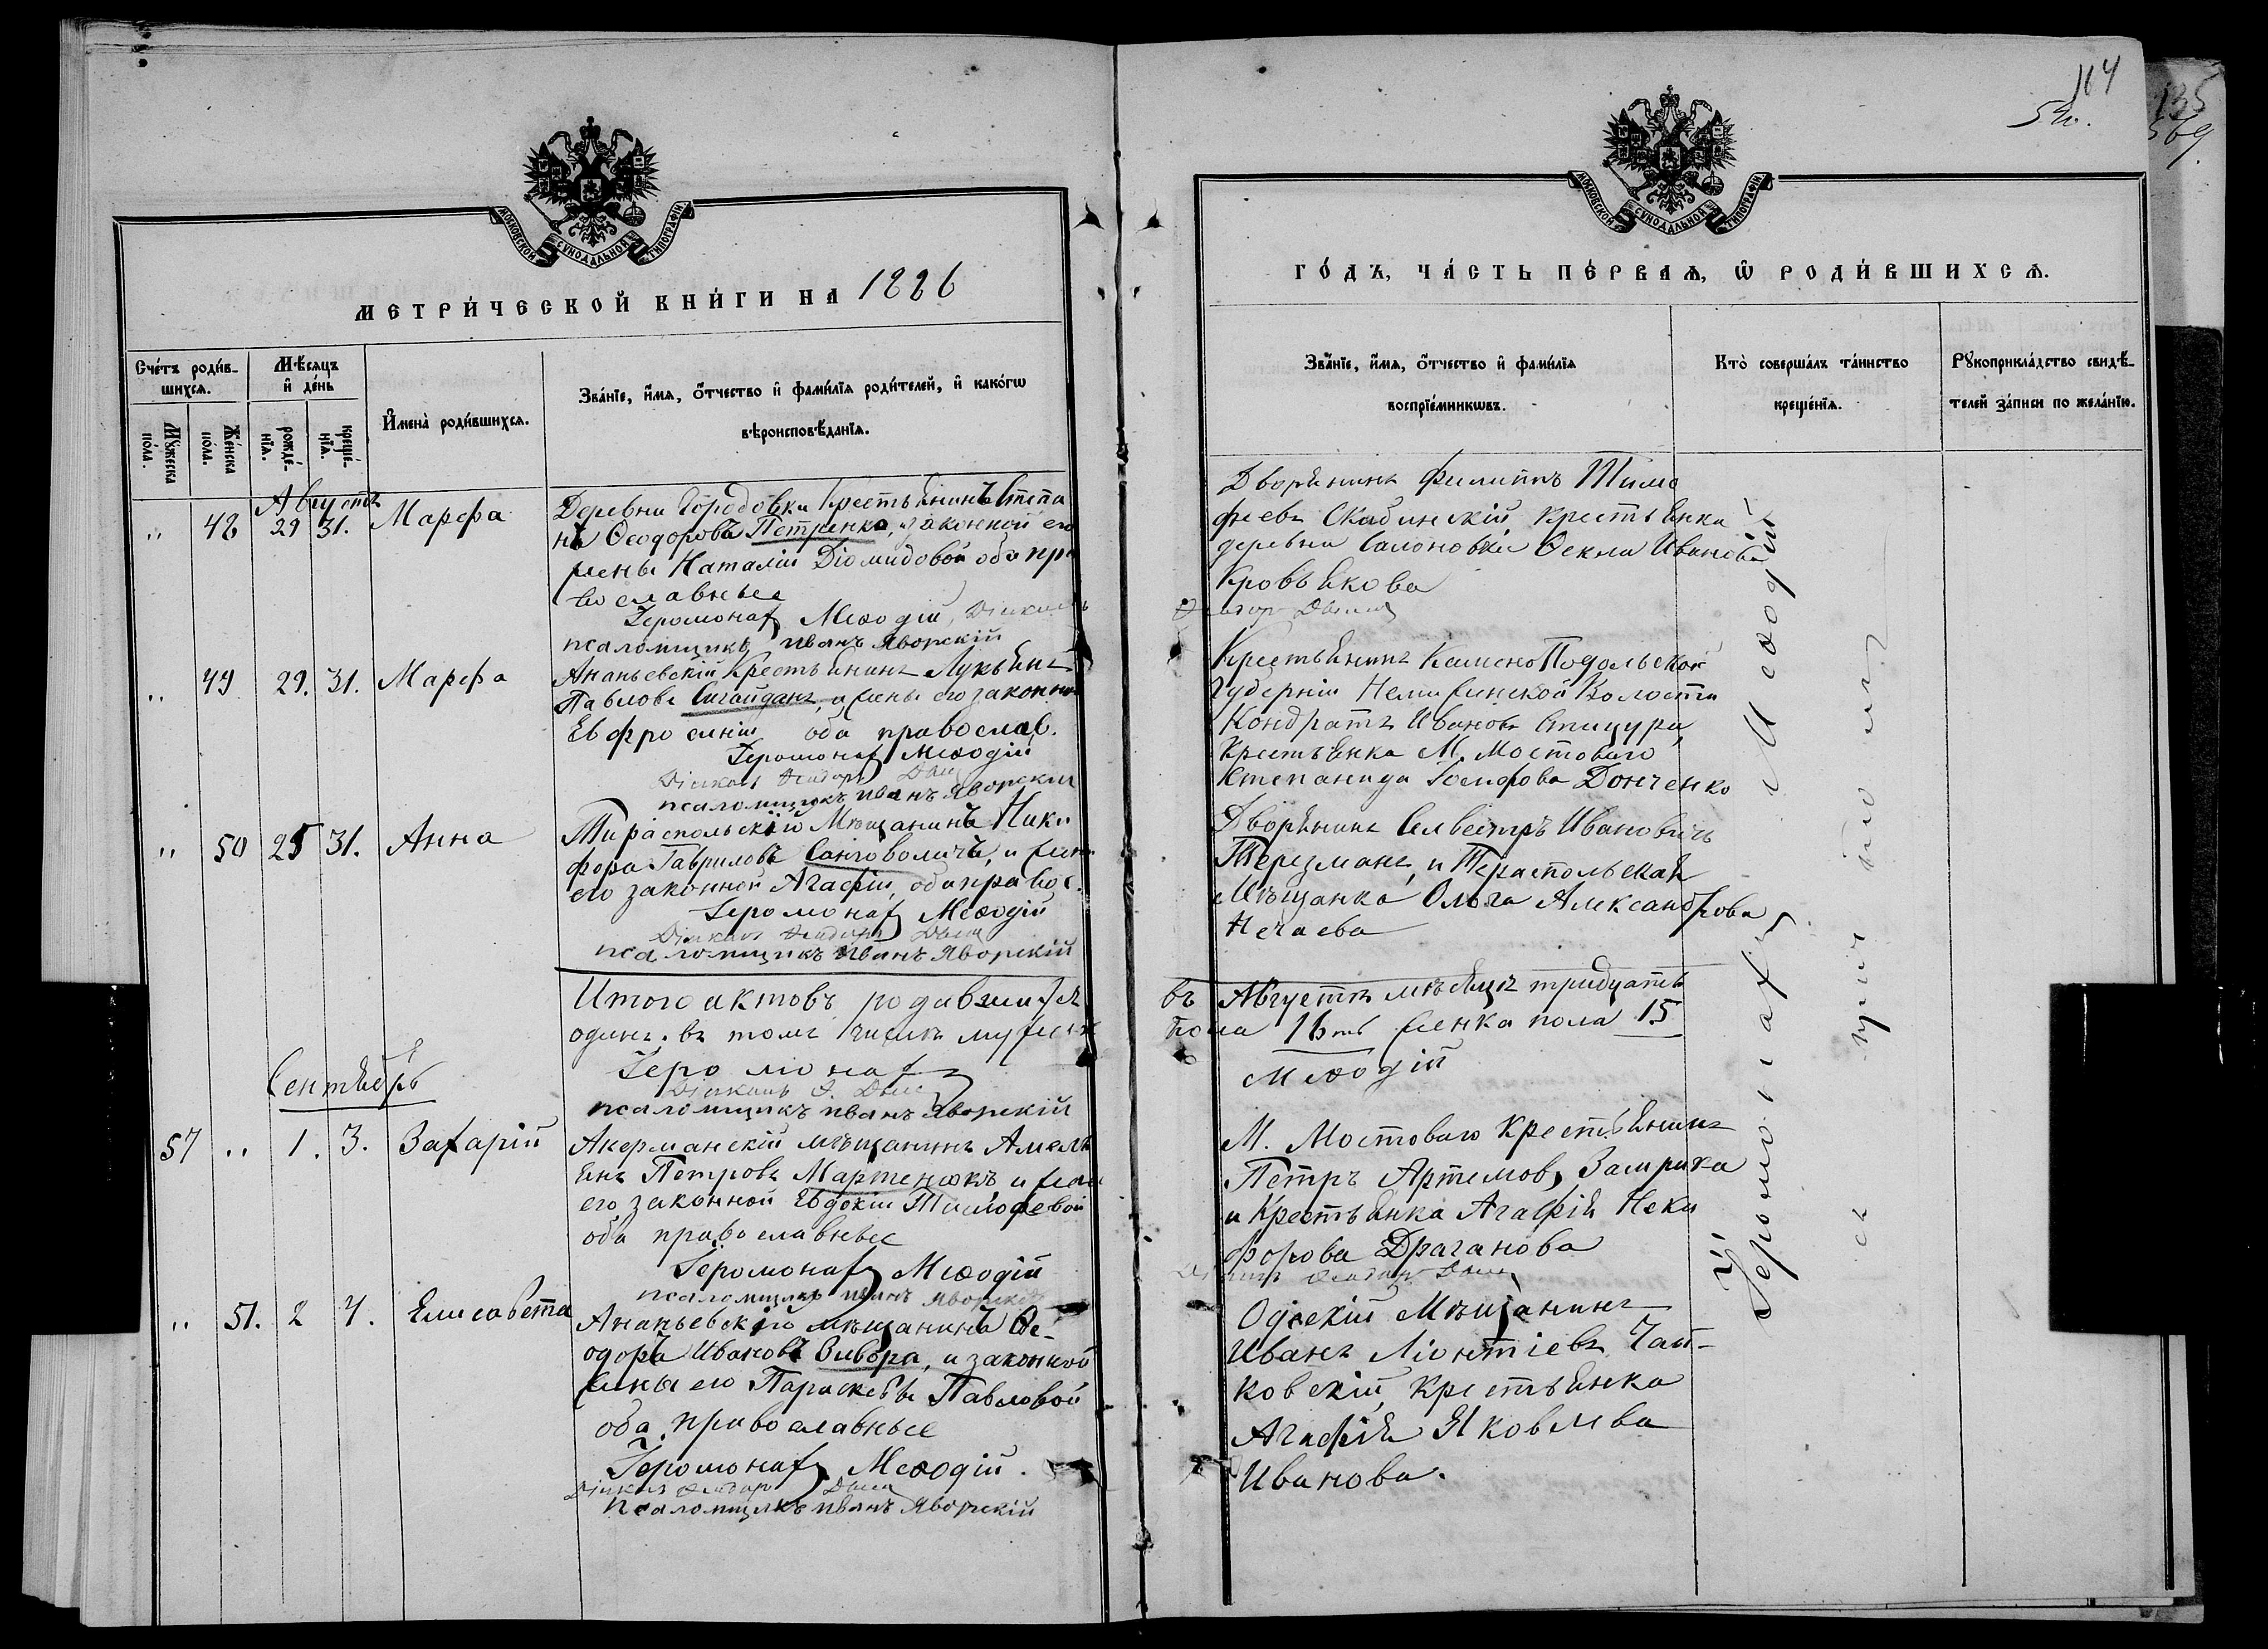 МОСКОВСКОЙ СѴНОДАЛЬНОЙ ТИПОГРАФІИ
МЕТРИ́ЧЕСКОЙ КНИ́ГИ НА 1886
Сче́тъ роди́в-
шихсѧ.
Мѣ́сѧцъ
и҆ де́нь
И҆мена̀ роди́вшихсѧ.
Зва́нїе, и҆́мѧ, ѻ҆́тчество и҆ фами́лїѧ роди́телей, и҆ како́гѡ
вѣроисповѣ́данїѧ.
Мꙋ́жеска
по́ла.
Же́нска
по́ла.
рожде́-
нїѧ.
креще́-
нїѧ.
Августъ
„ 48 29 31. Марфа
Деревни Городовки Крестьянинъ Степа
нъ Ѳеодоровъ Петренко, и законной его
жены Наталіи Діомидовой оба пра
вославные
Іеромонах Меѳодій, Діаконъ
псаломщикъ иванъ Яворскій
„ 49 29. 31. Марфа
Ананьевскій Крестьянинъ Лукьянъ
Павловъ Сигайданъ, и жены его законной
Евфросиніи оба православ.
Іеромонах Меѳодій
Діаконъ Ѳеодоръ
псаломщикъ иванъ Яворскій
„ 50 25 31. Анна
Тираспольскій Мѣщанинъ Ники
фора Гавриловъ, и жены
его законной Агафіи, оба правос.
Іеромонах Меѳодій
Діаконъ Ѳеодоръ
псаломщикъ Иванъ Яворскій
Итого актовъ родившихся
одинъ. въ томъ числѣ мужеск
Іеромонах
Діаконъ Ѳ.
псаломщикъ иванъ Яворскій
Сентябрь
57 „ 1. 3. Захарій
Акерманскій мѣщанинъ Амель
янъ Петровъ Мартенюкъ, и жены
его законной Евдокіи Тимофевой
оба православные
Іеромонах Меѳодій
псаломщикъ иванъ Яворскій
„ 51. 2 4. Елисавета
Ананьевскій мѣщанинъ Ѳе-
одора Ивановъ, и законной
жены его Параскевы Павловой
оба православные
Іеромонах Меѳодій.
Діаконъ Ѳеодоръ
Псаломщикъ иванъ Яворскій
104
135
569
МОСКОВСКОЙ СѴНОДАЛЬНОЙ ТИПОГРАФІИ
ГО́ДЪ, ЧА́СТЬ ПЕ́РВАѦ, Ѡ҆ РОДИ́ВШИХСѦ.
Зва́нїе, и҆́мѧ, ѻ҆́тчество и҆ фами́лїѧ
воспрїе́мникѡвъ.
Кто̀ соверша́лъ та́инство
креще́нїѧ.
Рꙋкоприкла́дство свидѣ́-
телей за́писи по жела́нїю.
Дворянинъ Филиппъ Тимо
феевъ Скабинскій Крестьянка
деревни Салоновки Ѳекла Иванова
Кровьякова
Крестьянинъ Камено Подольской
Губерніи Волости
Кондратъ Ивановъ Стицура,
Крестьянка М. Мостоваго
Степанида Іосифова Донченко
Дворянинъ Селвестръ Ивановичъ
Терезманъ, и Тираспольская
Мѣщанка Ольга Александрова
Нечаева
въ Августѣ мѣсяцѣ тридцать
пола 16ть женска пола 15
Меѳодій
М. Мостоваго Крестьянинъ
Петръ Артемовъ, Замрика
и Крестьянка Агафія Неки
форова Драганова
Одескій Мѣщанинъ
Иванъ Ліонтіевъ Чай-
ковскій, Крестьянка
Агафія Яковлева
Иванова.
Іеромонахъ Меѳодій
съ причтомъ